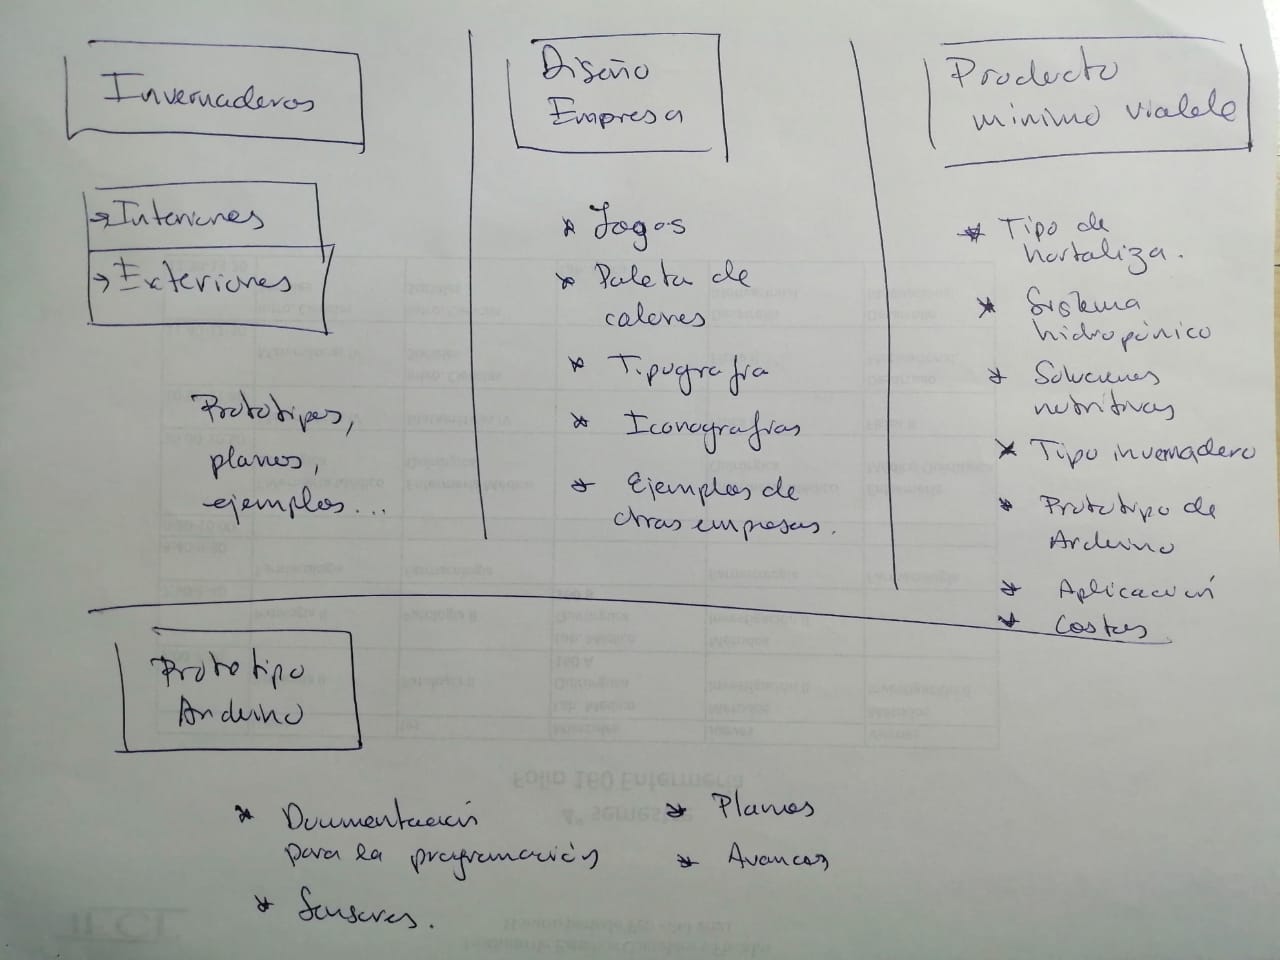 Invernaderos
→Interiores
→Exteriores
Prototipos,
planos,
ejemplos...
Diseño
Empresa
* Logos
* Paleta de
colores
* Tipografía
* Iconografías
* Ejemplos de
otras empresas.
Producto
mínimo viable
* Tipo de
hortaliza.
* Sistema
hidropónico
* Soluciones
nutritivas
* Tipo invernadero
* Prototipo de
Arduino
* Aplicación
* Costos
Prototipo
Arduino
* Documentación
para la programación
* Sensores.
* Planos
* Avances
Folio 160 Enfermería
4° semestre